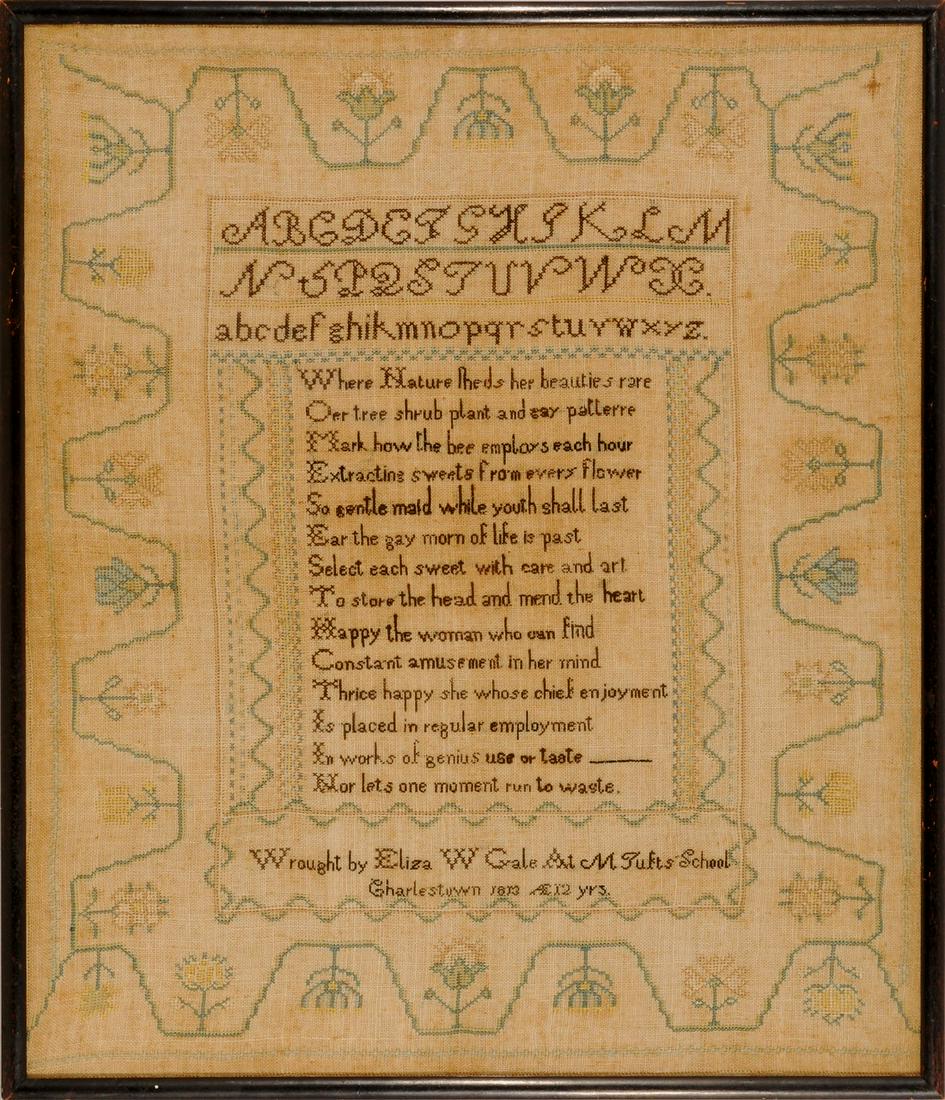 ABCDEFGHIKLM
NOPQSTUVWX.
abcdefghikmnopqrstuvwxyz.
Where Nature sheds her beauties rare
Oer tree shrub plant and gay patterre
Mark how the bee employs each hour
Extracting sweets from every flower
So gentle maid while youth shall last
Ear the gay morn of life is past
Select each sweet with care and art
To store the head and mend the heart
Happy the woman who can find
Constant amusement in her mind
Thrice happy she whose chief enjoyment
Is placed in regular employment
In works of genius use or taste
Nor lets one moment run to waste.
Wrought by Eliza W Gale At M Tufts School
Charlestown 1813 Æ 12 yrs.